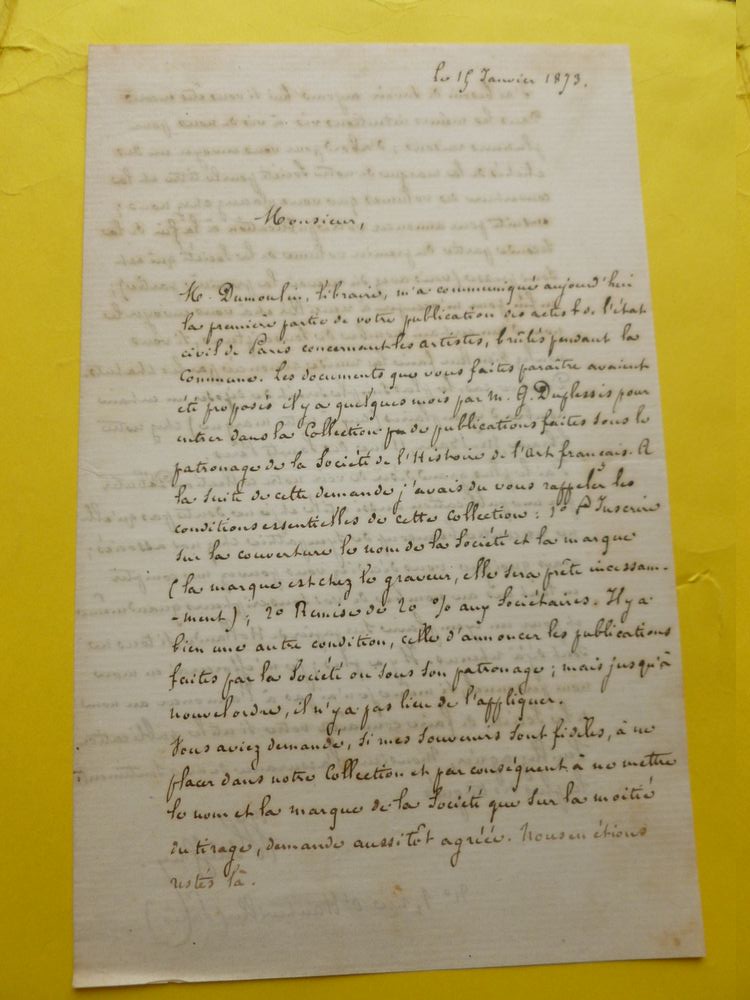 le 15 Janvier 1873.
Monsieur,
M. Dumoulin, libraire, m'a communiqué aujourd'hui
la première partie de votre publication des actes de l'état
civil de Paris concernant les artistes, brûlés pendant la
Commune. Les documents que vous faites paraître avaient
été proposés il y a quelques mois par M. G. Duplessis pour
entrer dans la Collection de publications faites sous le
patronage de la Société de l'Histoire de l'art français. A
la suite de cette demande j'avais du vous rappeler les
conditions essentielles de cette collection : 1º Inscrire
sur la couverture le nom de la Société et la marque
(la marque est chez le graveur, elle sera prête incessam-
-ment) ; 2º Remise de 20 % aux Sociétaires. Il y a
bien une autre condition, celle d'annoncer les publications
faites par la Société ou sous son patronage ; mais jusqu'à
nouvel ordre, il n'y a pas lieu de l'appliquer.
Vous aviez demandé, si mes souvenirs sont fidèles, à ne
placer dans notre Collection et par conséquent à ne mettre
le nom et la marque de la Société que sur la moitié
du tirage, demande aussitôt agréée. Nous en étions
restés là.